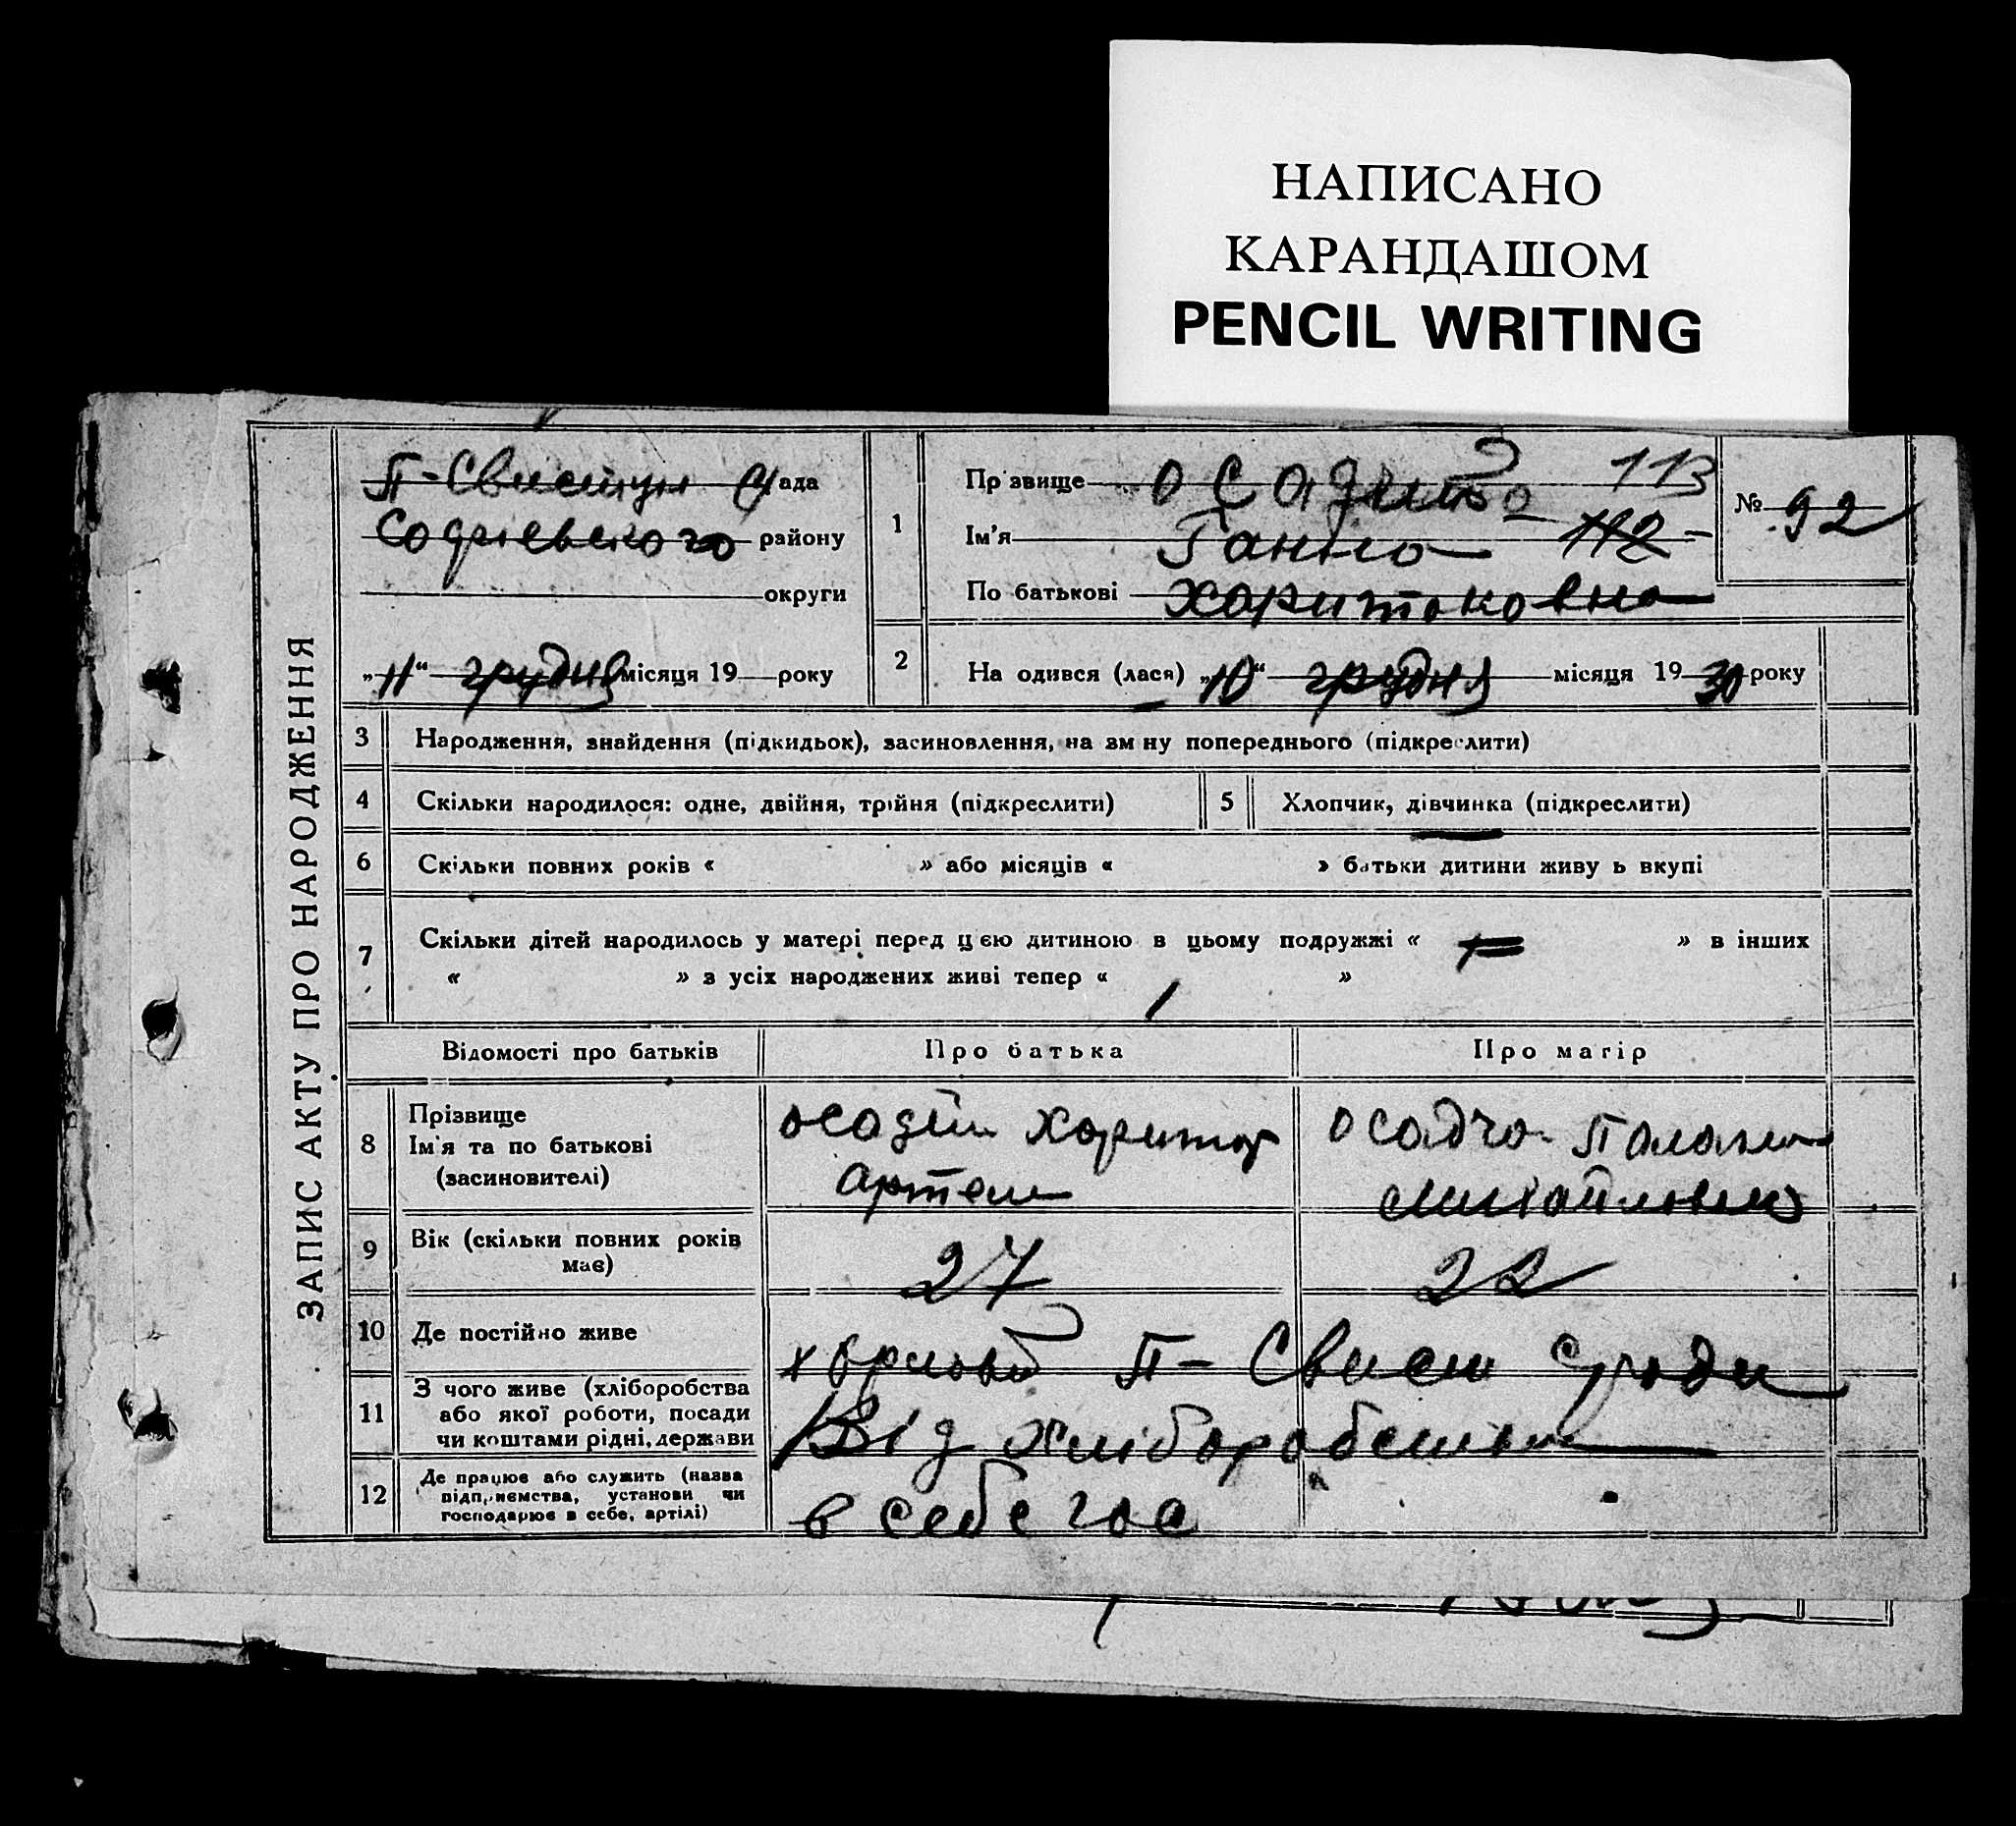 НАПИСАНО
КАРАНДАШОМ
PENCIL WRITING
ЗАПИС АКТУ ПРО НАРОДЖЕННЯ
П-Свистун с/рада
району
округи
„11“ грудня місяця 19 року
1
Прізвище 113
Ім'я Ганна 112
По батькові Харитоновна
№ 92
2
На одився (лася) „10“ грудня місяця 1930 року
3 Народження, знайдення (підкидьок), засиновлення, на зм ну попереднього (підкреслити)
4 Скільки народилося: одне, двійня, трійня (підкреслити) 5 Хлопчик, дівчинка (підкреслити)
6 Скільки повних років « » або місяців « » батьки дитини живу ь вкупі
7 Скільки дітей народилось у матері перед цією дитиною в цьому подружжі « » в інших
« » з усіх народжених живі тепер « 1 »
Відомості про батьків Про батька Про матір
8 Прізвище
Ім'я та по батькові
(засиновителі)
Осадчий Харитон
Артем
Осадча
Михайловна
9 Вік (скільки повних років
має)
27 22
10 Де постійно живе П-Свист с/ради
11 З чого живе (хліборобства
або якої роботи, посади
чи коштами рідні, держави
Від хліборобства
12 Де працює або служить (назва
підприємства, установи чи
господарює в себе, артілі)
в себе гос